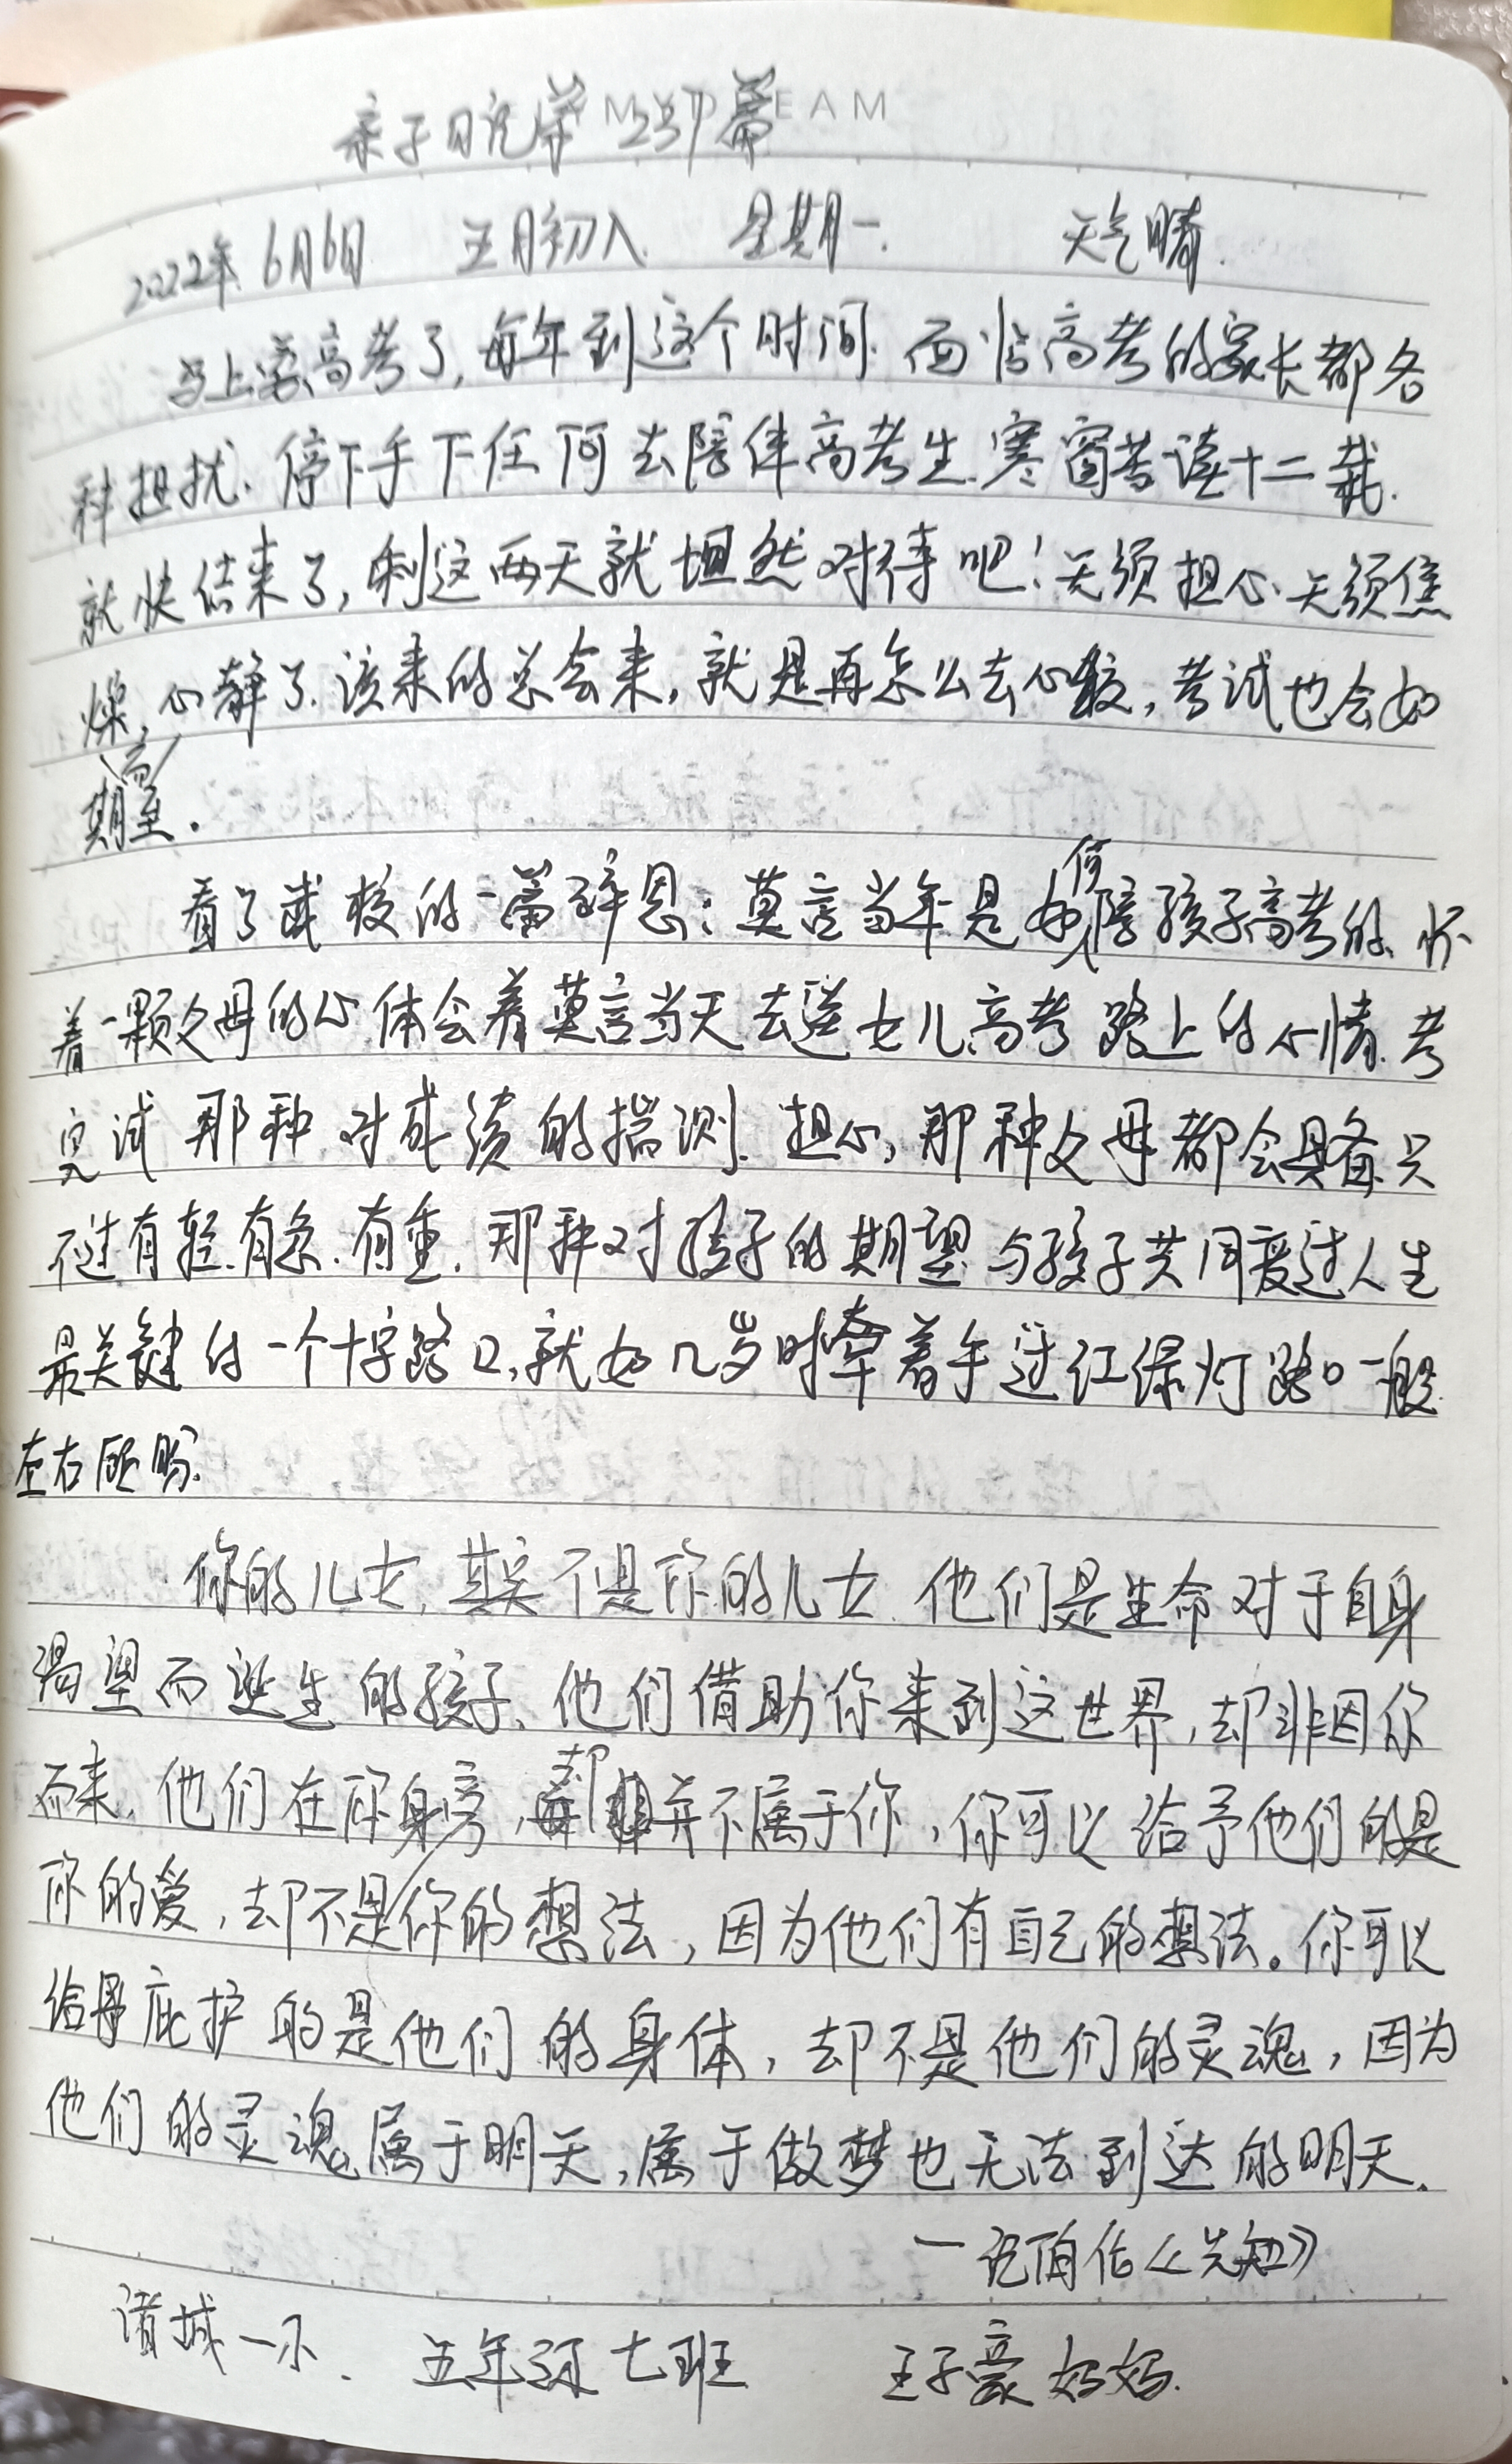 亲子日记第 257 篇
MY D EAM
2022年 6月6日 五月初八 星期一. 天气晴.
马上要高考了,每年到这个时间.面临高考的家长都各
种担扰.停下手下任何去陪伴高考生.寒窗苦读十二载.
就快结束了,剩这两天就坦然对待吧!无须担心无须焦
燥,心静了.该来的总会来,就是再怎么去心,考试也会如
期而至.
看了 校的一篇 恩:莫言当年是如何陪孩子高考的.怀
着一颗父母的心体会着莫言当天去送女儿高考路上的心情.考
完试那种对成绩的揣测.担心,那种父母都会具备.只
不过有轻.有急.有重.那种对孩子的期望与孩子共同度过人生
最关键的一个十字路口,就如几岁时牵着手过红绿灯路口一般
左右顾盼.
你的儿女,其实不是你的儿女.他们是生命对于自身
渴望而诞生的孩子、他们借助你来到这世界,却非因你
而来.他们在你身旁,却并不属于你,你可以给予他们的是
你的爱,却不是你的想法,因为他们有自己的想法。你可以
给予庇护的是他们的身体,却不是他们的灵魂,因为
他们的灵魂属于明天,属于做梦也无法到达的明天.
一记伯伦《先知》
诸城一小. 五年级七班 王子豪妈妈.